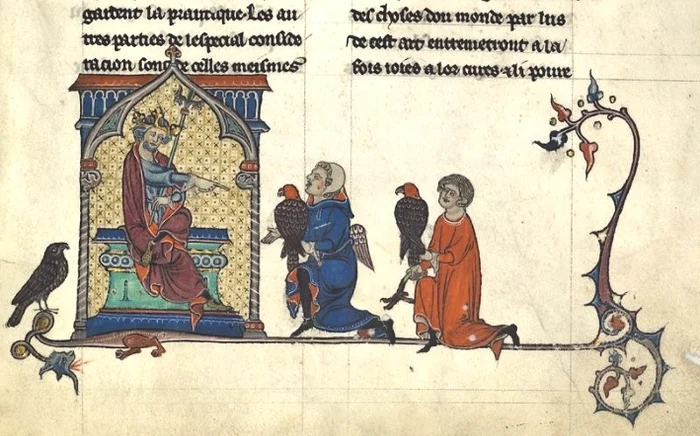 gardent la prautique. Les au
tres parties de lespecial conside
racion sont de celles meismes
des choses dou monde par lus
de cest art entremetront a la
fois ioies a lor cures ⁊ li poure